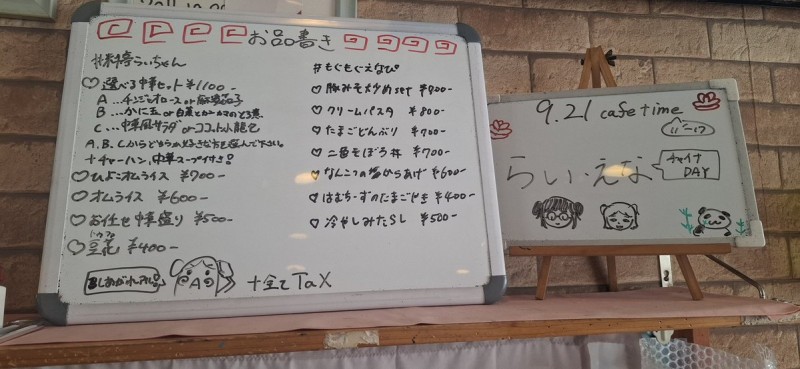 お品書き
♡ 選べる中華セット ¥1100-
A...チンジャオロース or 麻婆茄子
B...かに玉 or
C...中華風サラダ or ココット小籠包
A,B,Cからどちらか好きな方を選んで下さい。
+チャーハン,中華スープ付き!
♡ ひよこオムライス ¥700-
♡ オムライス ¥600-
♡ お任せ中華盛り ¥500-
トウファ
♡ 豆花 ¥400-
#もぐもぐえなぴ
♡ 豚みそ炒めset ¥900-
♡ クリームパスタ ¥800-
♡ たまごどんぶり ¥700-
♡ 二色そぼろ丼 ¥700-
♡ なんこつの唐からあげ ¥600-
♡ はむちーずのたまごやき ¥400-
♡ 冷やしみたSL ¥500-
+全てTaX
9.21 cafe time
11:00-17
らい・えな
チャイナ
DAY